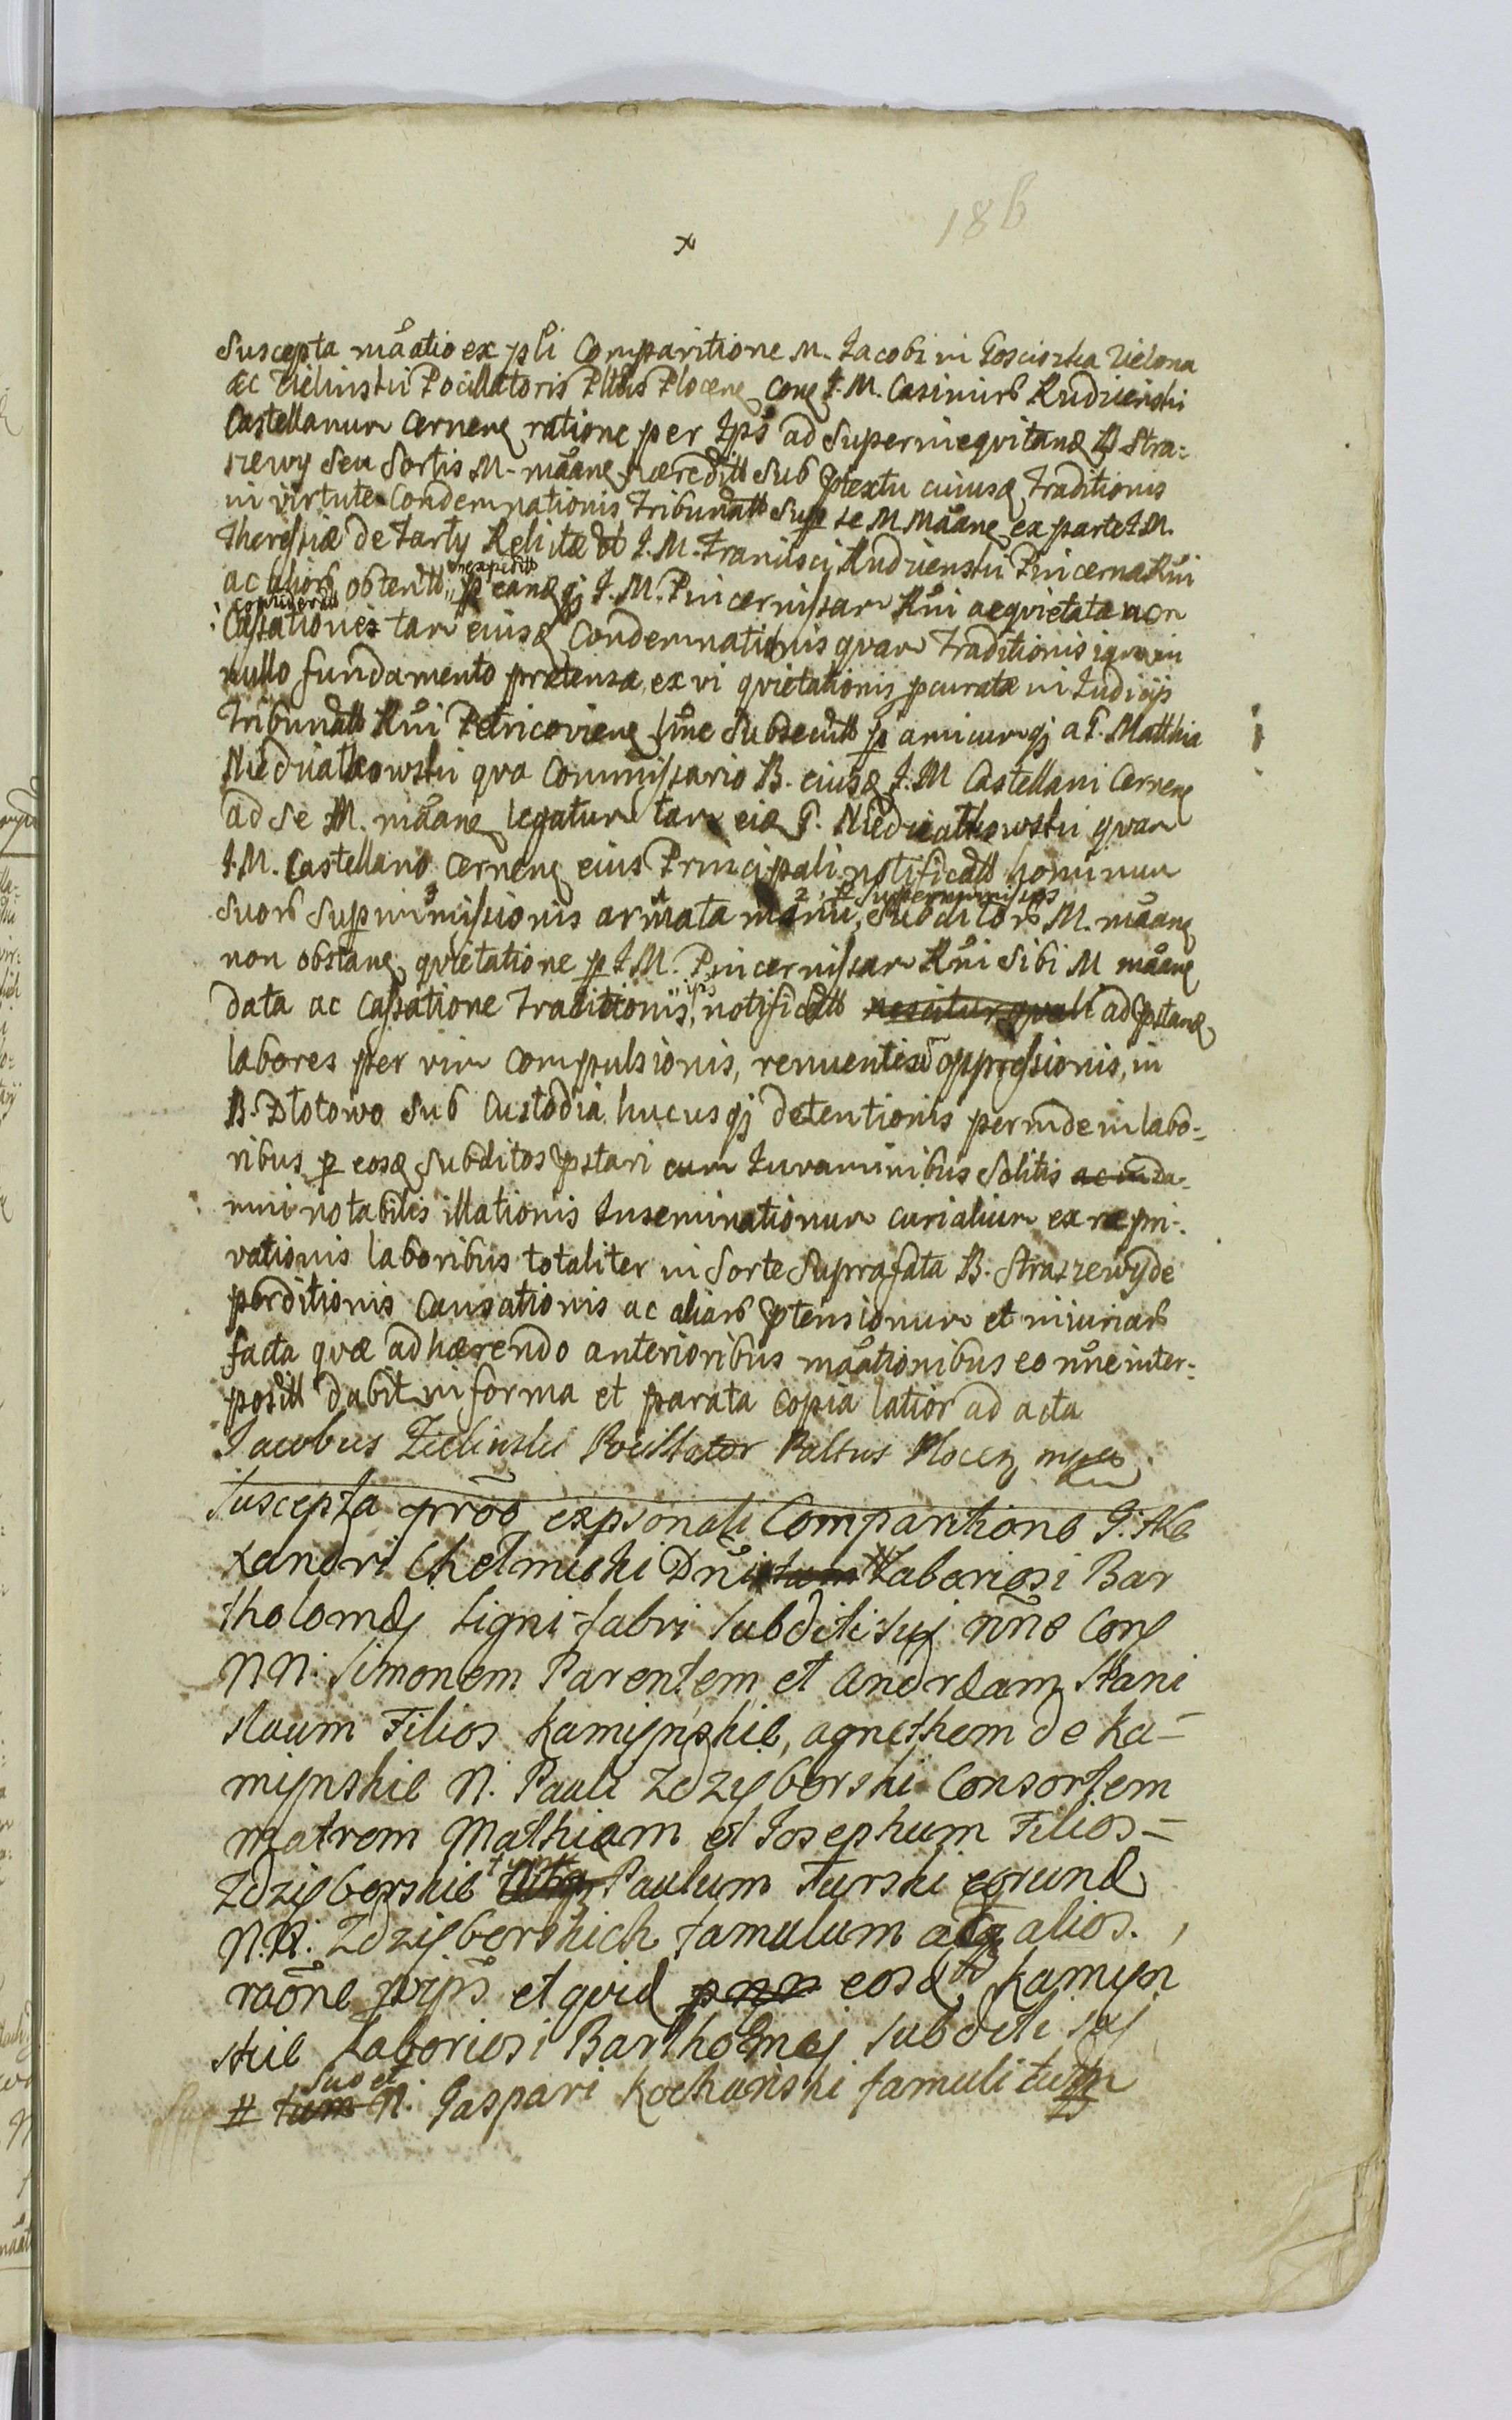 186
x
Suscepta mãatio ex psli Comparitione M. Jacobi in Gosciszka Zielona
ac Zielinski Pocillatoris Pltus Plocen̄ con̄ I. M. Casimirū Rudzienski
Castellanum Cernen̄ ratione per Ips̃ ad Superinequitand B Stra-
szewy Seu Sortis M. mãan̄ hæredit Sub ptextu cuiusd Traditionis
in virtute Condemnationis Tribunall Sup se M Mãan̄ ex parte I M.
Theresiæ de Zarty Relictæ olt I. M. Francisci Rudzienski Pincernæ Rñi
ac aliorū obtentæ expeditæ p eand q; I. M. Pincernissam Rñi aequietatæ non
considerata
Cassationes tam eiusd Condemnationis quam Traditionis in
nullo fundamento prætensæ, ex vi quietationis pcuratæ in Iudicijs
Tribunall Rñi Petricovien̄ Subsecutæ p amicum q; a G. Matthia
Niedzialkowski qva Commissario B. eiusd I. M Castellani Cernen̄
ad se M. mãan̄ legatum tam eid G. Niedzialkowski quam
I. M. Castellano Cernen̄ eius Principali notificatæ hominum
Suorū Supinmissionis armata manu, 2. p Superinmissos Subditorū M. mãan̄
non obstan̄ quietatione p I M. Pincernissam Rñi Sibi M mãan̄
data ac Cassatione Traditionis ips̃ notificatæ nescitur quali ad pstand
labores per vim compulsionis, renuentisq oppressionis, in
B. Dłotowo Sub Custodia hucusq; detentionis perinde in labo-
ribus p eosd Subditos pstari cum Iuraminibus Solitis ac in da-
mni notabilis illationis Inseminationum curialium ex re pri-
vationis laboribus totaliter in Sorte Suprafata B. Straszewy de
perditionis Causationis ac aliarū ptensionum et iniuriarū
facta quæ adhærendo anterioribus mãationibus eo nñe inter-
posit dabit in forma et parata copia latior ad acta
Jacobus Zielinski Pocillator Paltus Plocen̄ mpp
Suscepta prõõ ex psonali Comparitione G. Ale
xandri Chelmicki Dñi tum # Laboriosi Bar
tholomej ligni-fabri Subditi sui nñe Con̄
N N. Simonem Parentem et Andream Stani
slaum Filios Kamynskie, agnethem de Ka-
mynskie N. Pauli Zdzyborski Consortem
matrem Mathiam et Josephum Filios-
Zdzyborskie tum Paulum Turski eorund
N. N. Zdzyborskich famulum atq alios.
raõne pr ips̃ et quid pnn eosd Kamyn
skie Laboriosi Bartholomej Subditi sui
# tum Suo et N. Gaspari Kochanski famuli